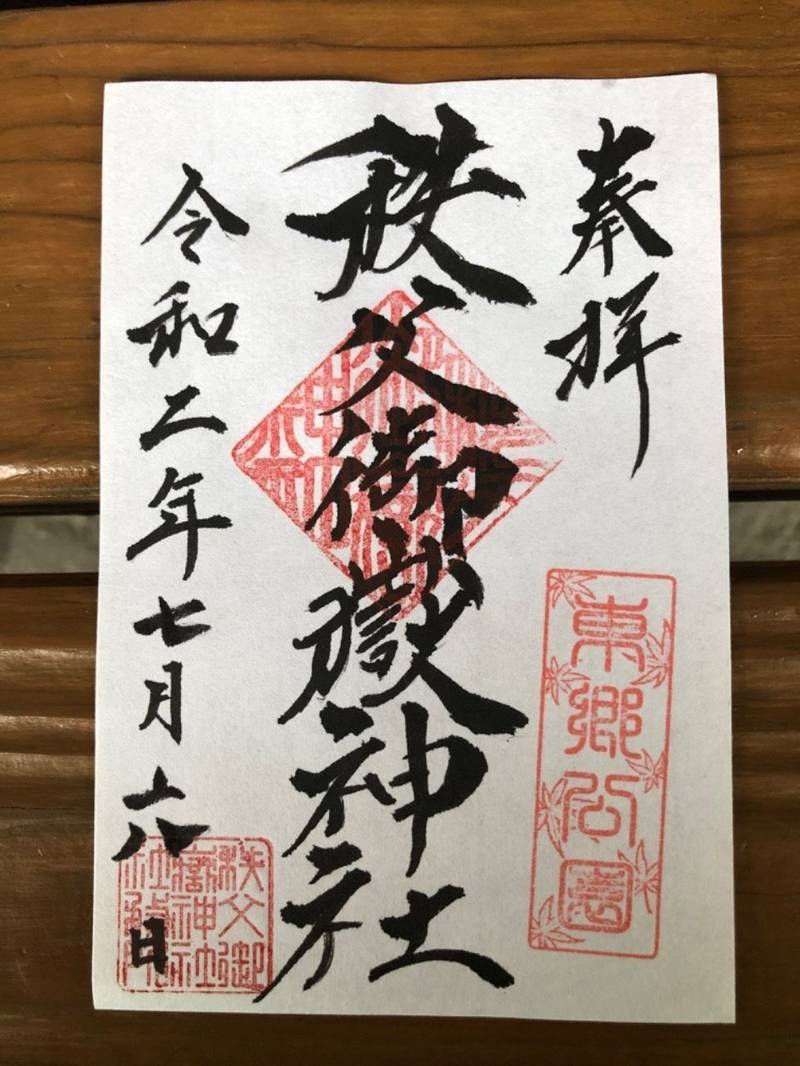 奉拝
東郷公園
秩父御嶽神社
令和二年七月十八日
秩父御
嶽神社
社務所